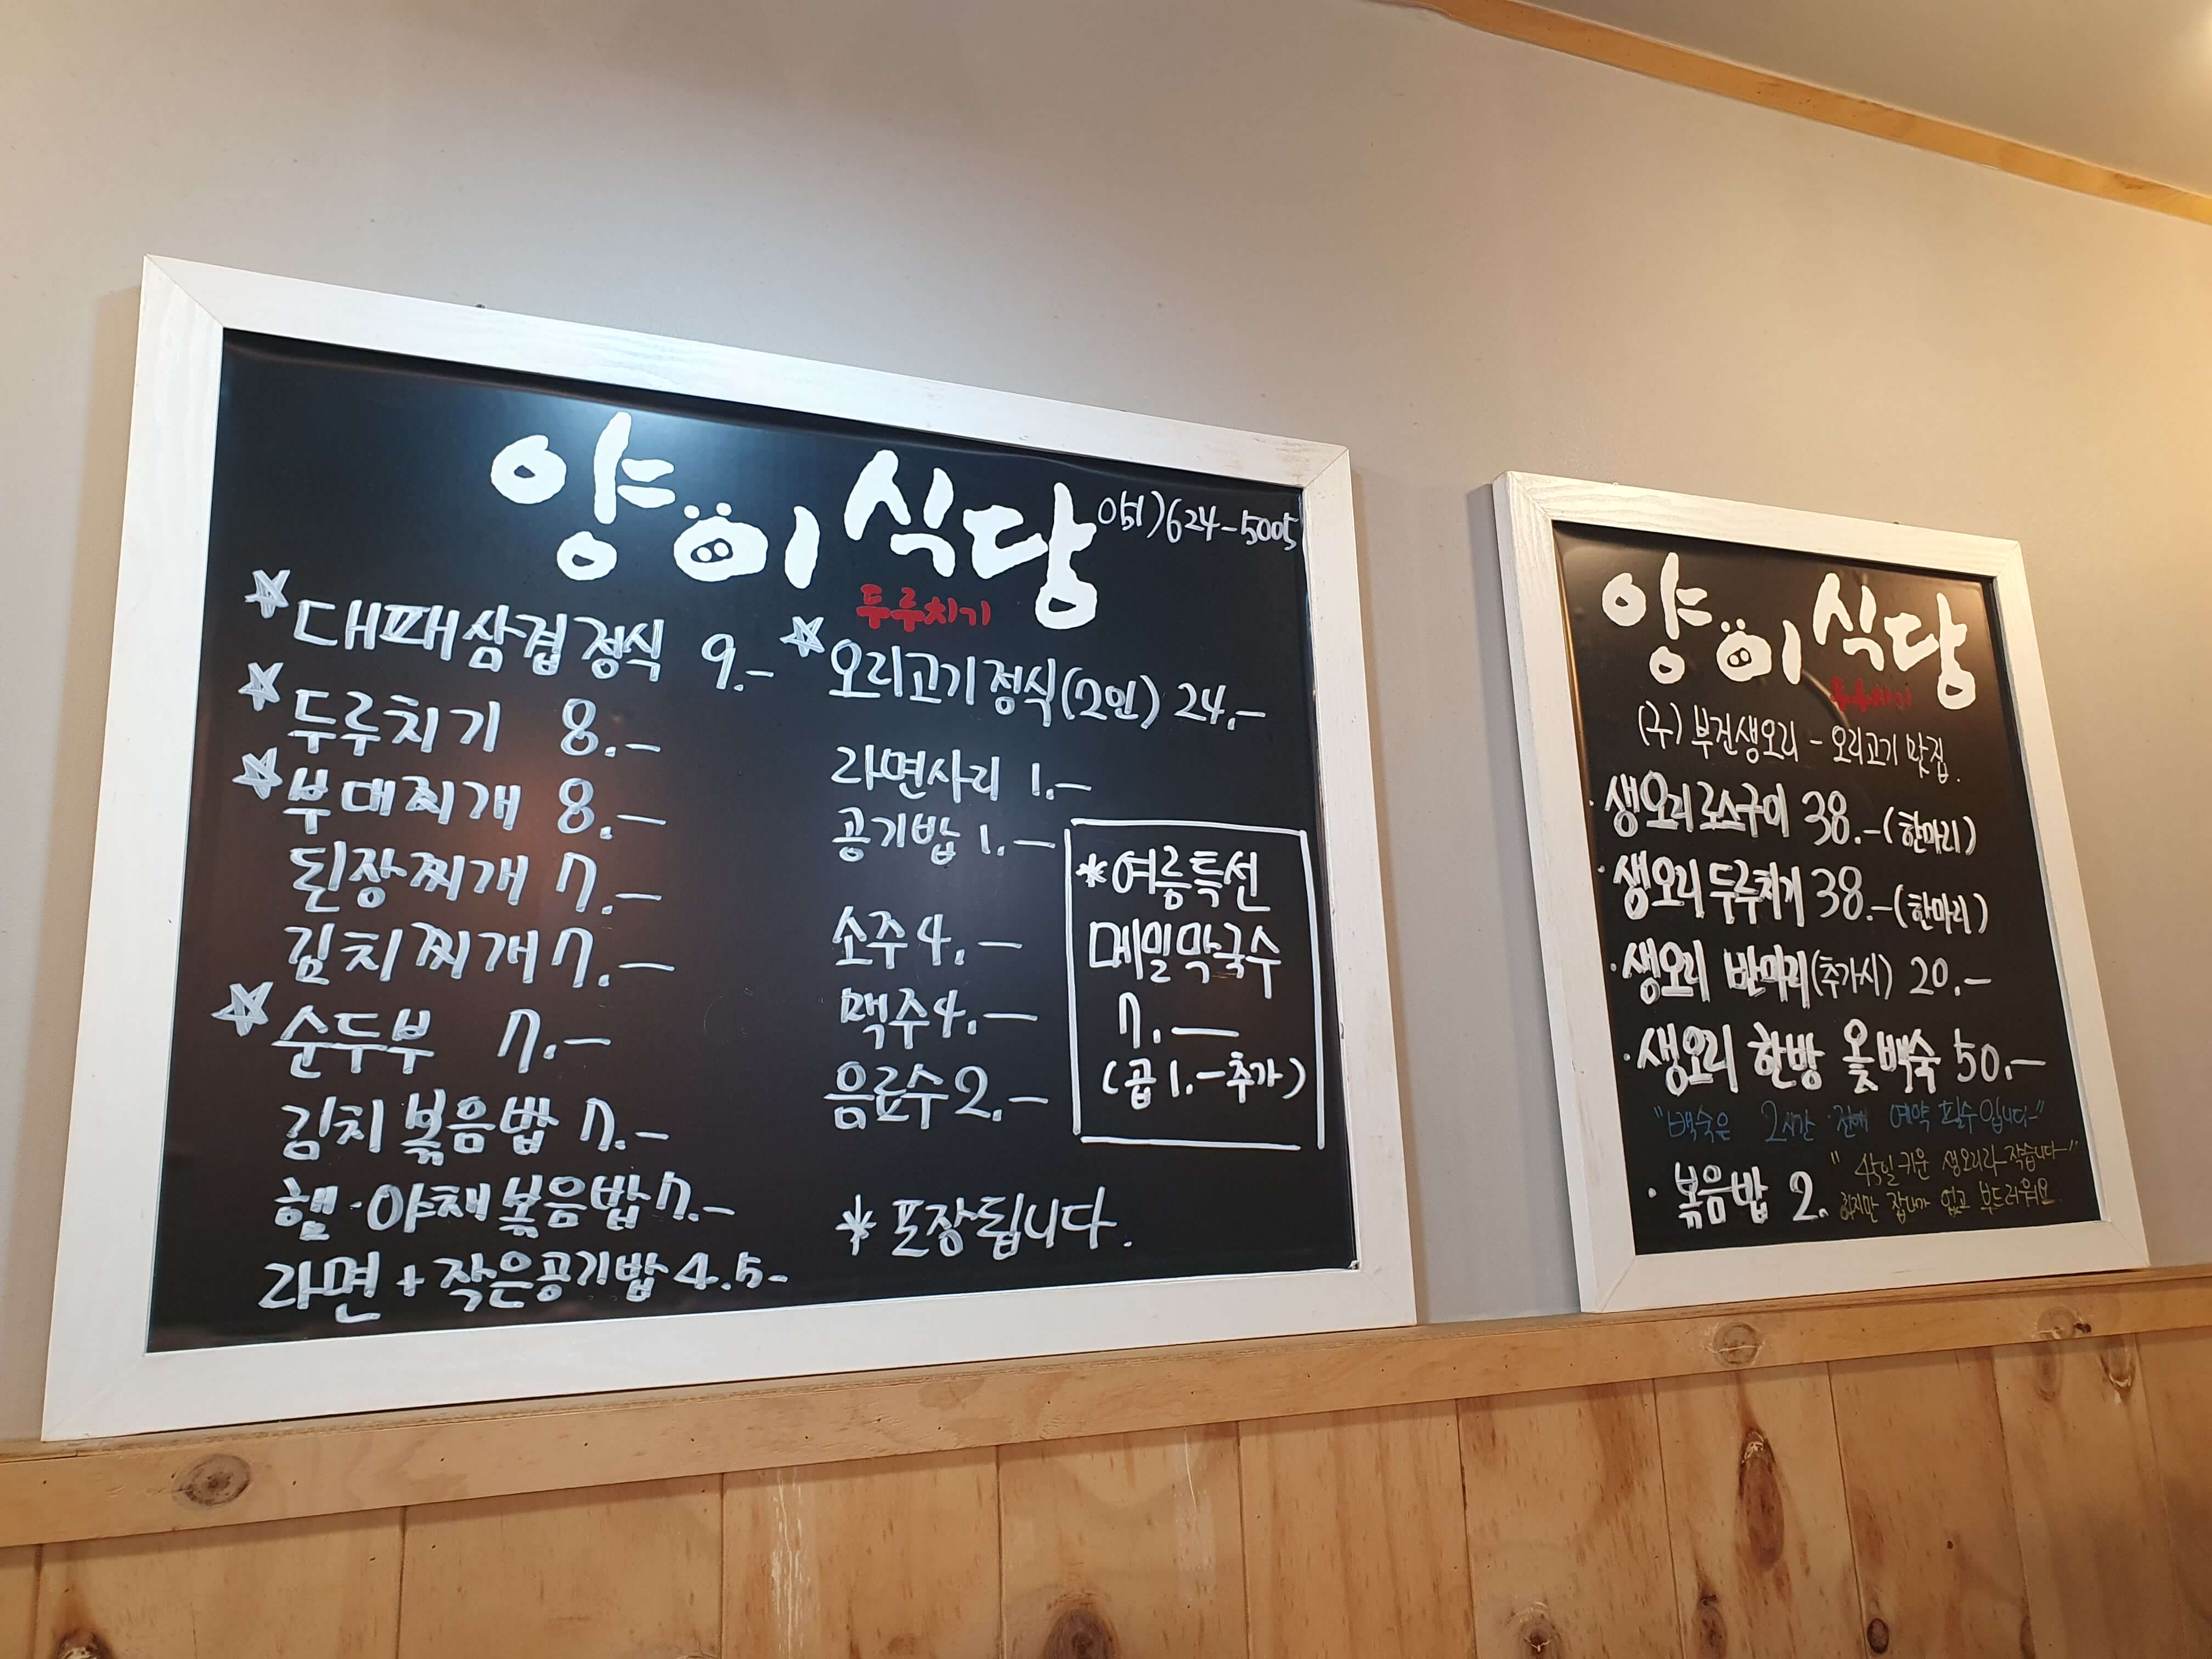 양이식당 051)624-5005
두루치기
☆대패삼겹정식 9.-
☆두루치기 8.-
☆부대찌개 8.-
된장찌개 7.-
김치찌개 7.-
☆순두부 7.-
김치볶음밥 7.-
햄·야채볶음밥 7.-
라면+작은공기밥 4.5-
☆오리고기정식(2인) 24.-
라면사리 1.-
공기밥 1.-
소주 4.-
맥주 4.-
음료수 2.-
*여름특선
메밀막국수
7.-
(곱 1.-추가)
*포장됩니다.
양이식당
두루치기
(구)부건생오리-오리고기 맛집.
·생오리로스구이 38.-(한마리)
·생오리두루치기 38.-(한마리)
·생오리 반마리(추가시) 20.-
·생오리 한방 옻백숙 50.-
"백숙은 2시간 전에 예약 필수입니다-"
·볶음밥 2.
"45일 키운 생오리라 작습니다-"
하지만 잡내가 없고 부드러워요.